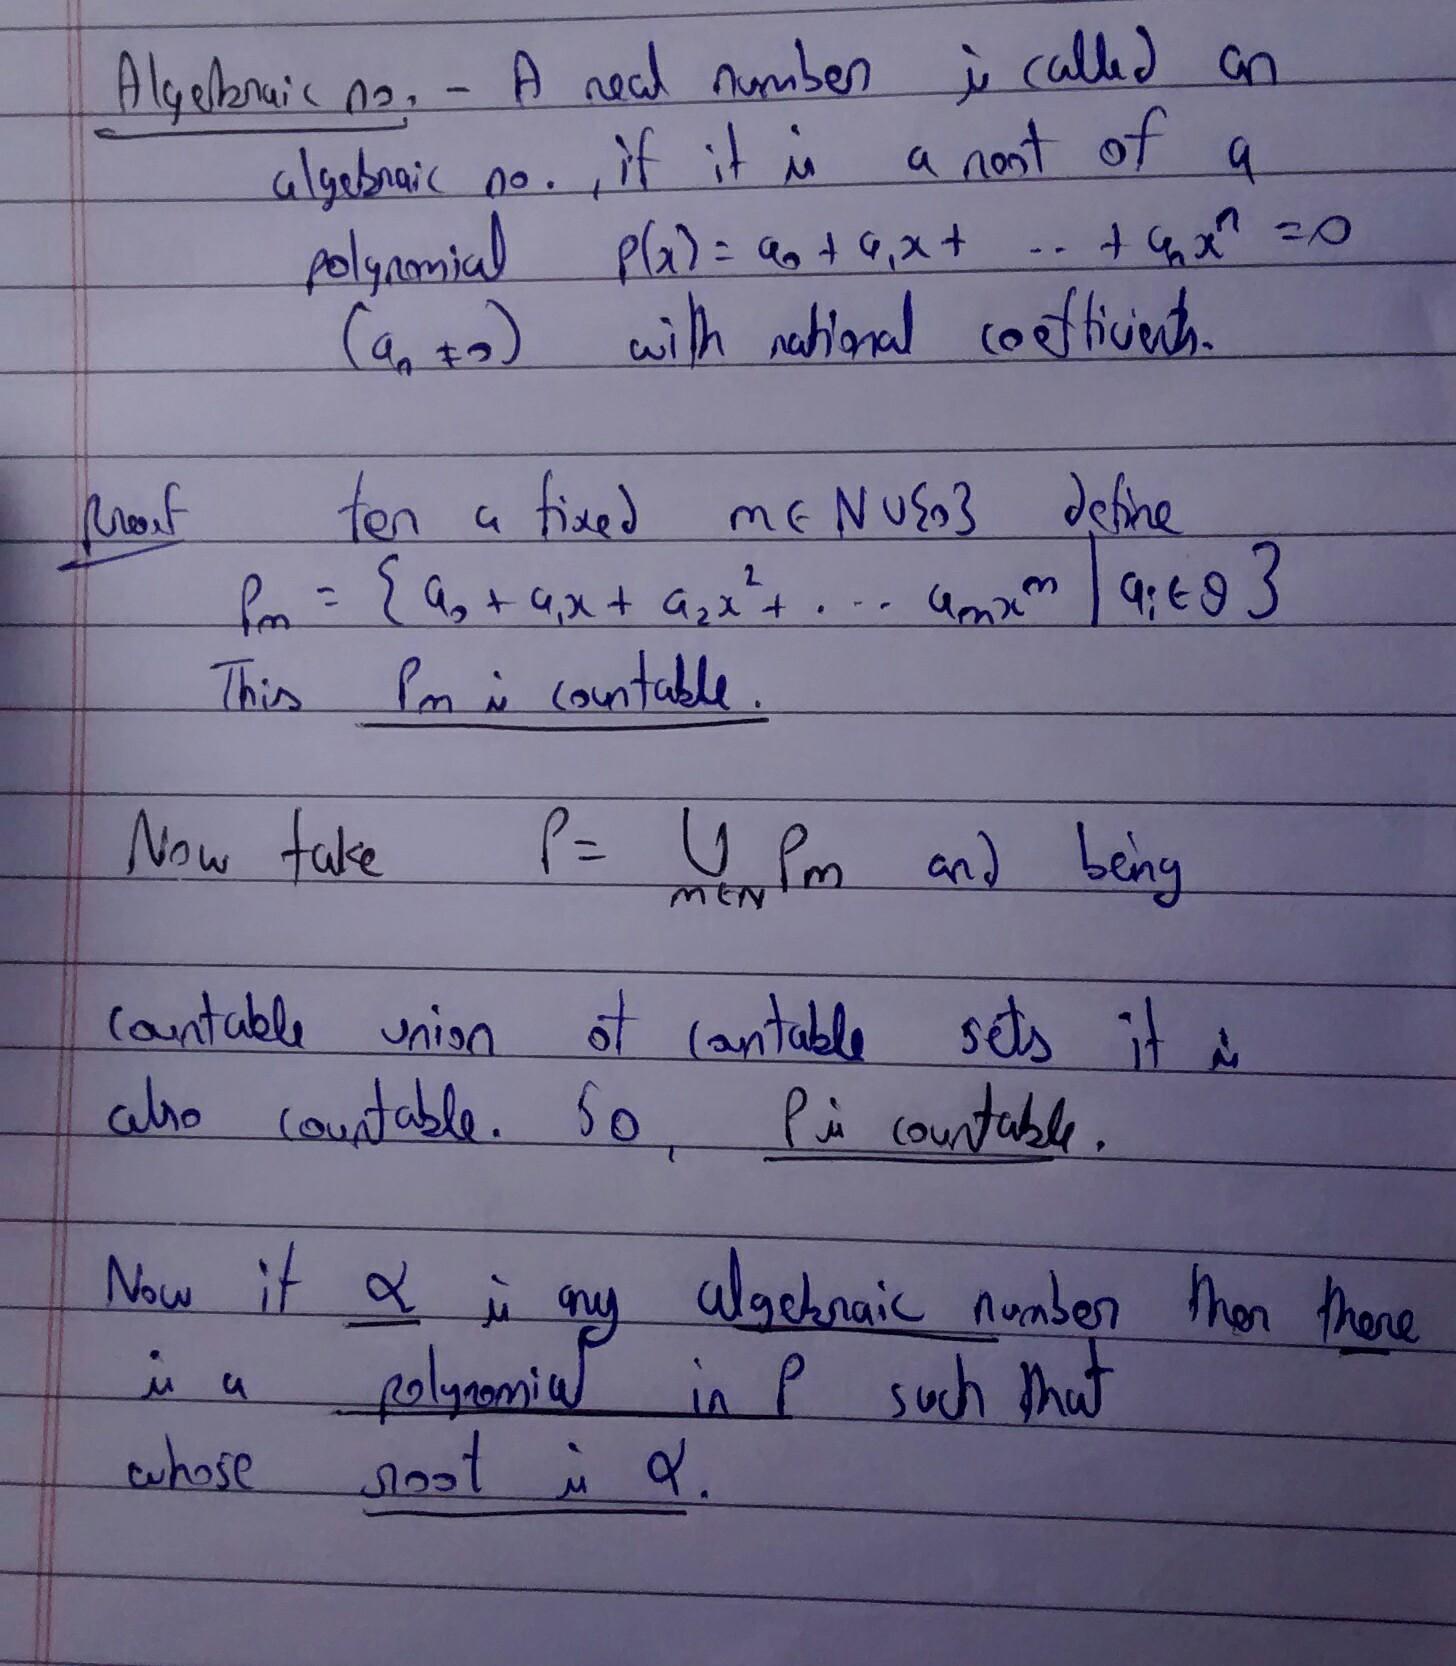 Algebraic no. - A real number is called an
algebraic no., if it is a root of a
polynomial p(x) = a₀ + a₁x + ... + aₙxⁿ = 0
(aₙ ≠ 0) with rational coefficients.
Proof for a fixed m ∈ N ∪ {0} define
Pm = { a₀ + a₁x + a₂x² + .... amxᵐ | aᵢ ∈ Q }
This Pm is countable.
Now take P = ⋃ Pm and being
m ∈ N
countable union of countable sets it is
also countable. So, P is countable.
Now if α is any algebraic number then there
is a polynomial in P such that
whose root is α.